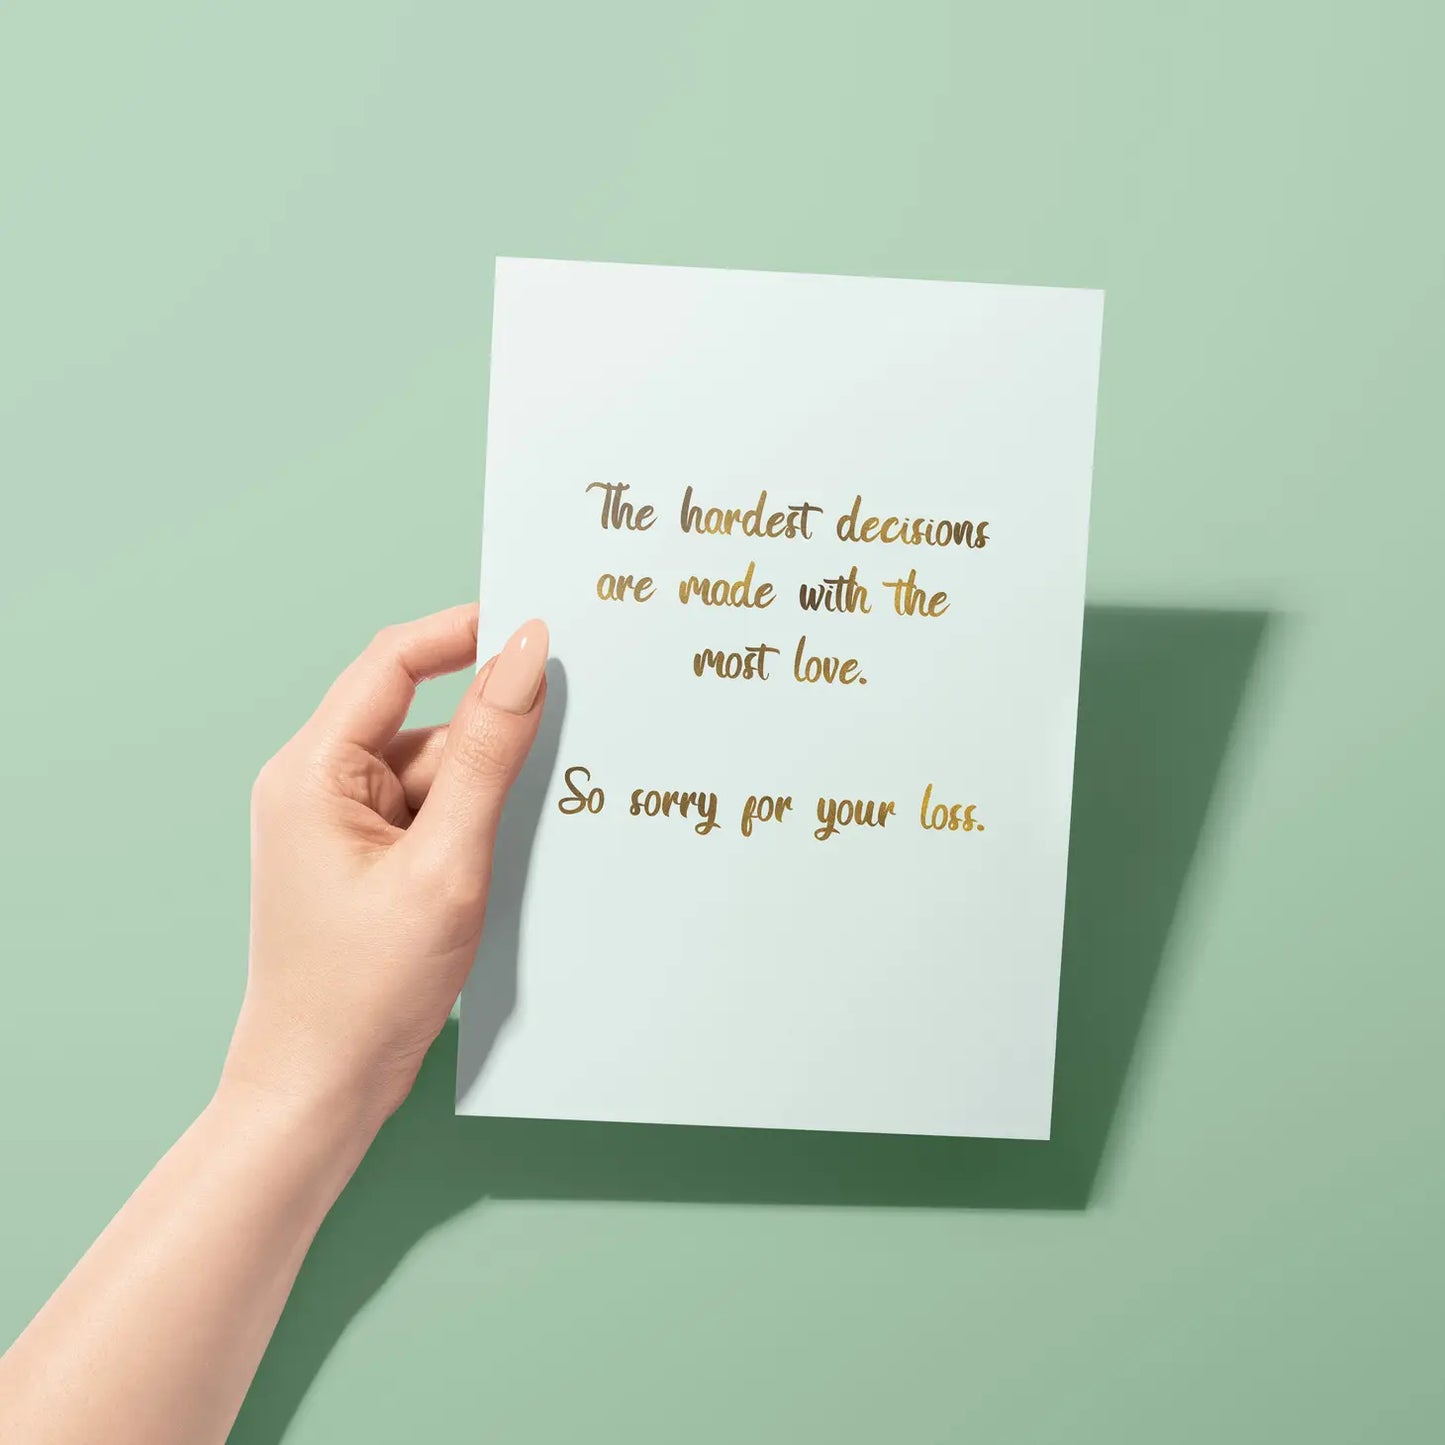 The hardest decisions
are made with the
most love.
So sorry for your loss.